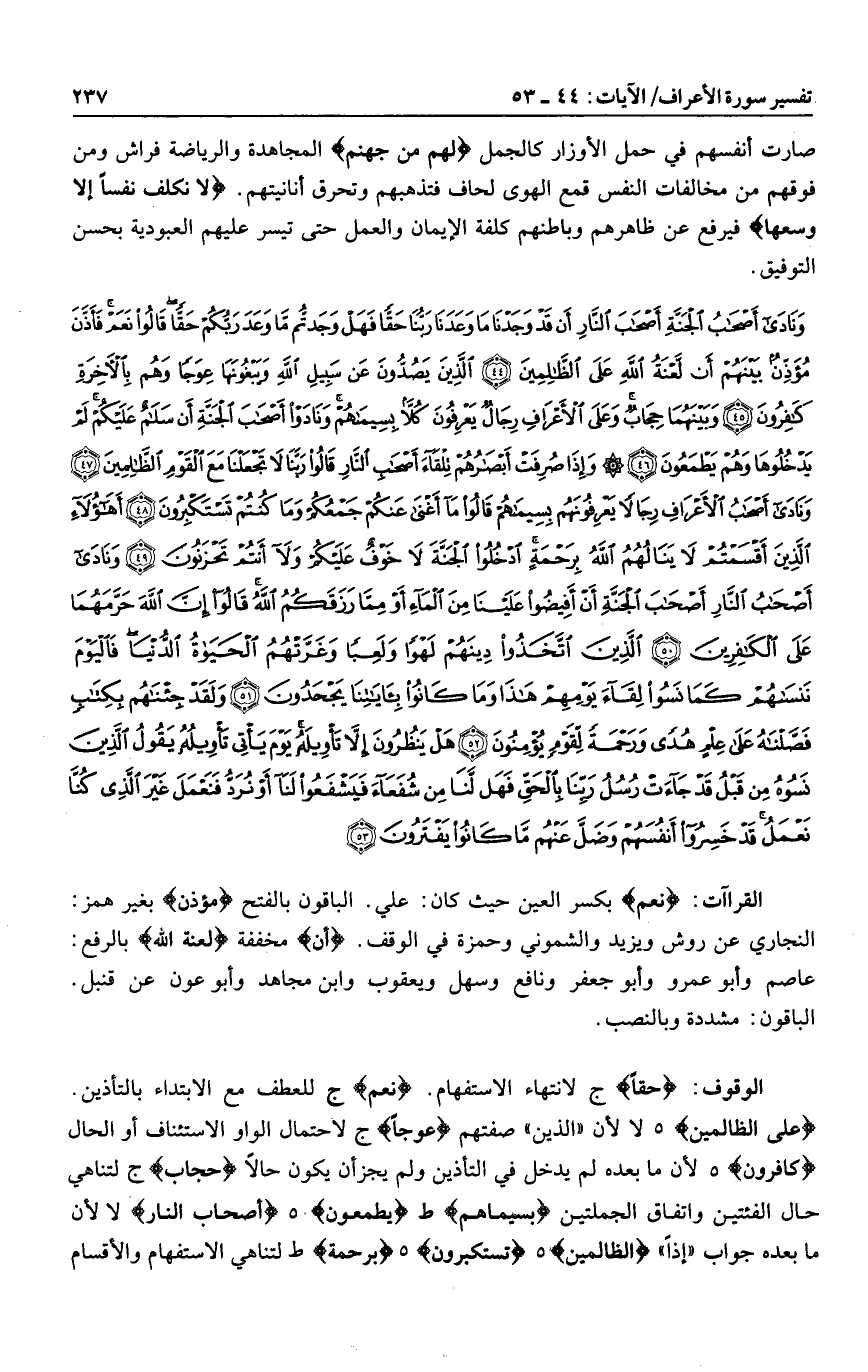 تفسير سورة الأعراف/ الآيات: ٤٤ - ٥٣ ٢٣٧
صارت أنفسهم في حمل الأوزار كالجمل ﴿لهم من جهنم﴾ المجاهدة والرياضة فراش ومن
فوقهم من مخالفات النفس قمع الهوى لحاف فتذهبهم وتحرق أنانيتهم. ﴿لا نكلف نفساً إلا
وسعها﴾ فيرفع عن ظاهرهم وباطنهم كلفة الإيمان والعمل حتى تيسر عليهم العبودية بحسن
التوفيق.
وَنَادَىٰٓ أَصْحَٰبُ ٱلْجَنَّةِ أَصْحَٰبَ ٱلنَّارِ أَن قَدْ وَجَدْنَا مَا وَعَدَنَا رَبُّنَا حَقًّا فَهَلْ وَجَدتُّم مَّا وَعَدَ رَبُّكُمْ حَقًّا ۖ قَالُوا۟ نَعَمْ ۚ فَأَذَّنَ
مُؤَذِّنٌۢ بَيْنَهُمْ أَن لَّعْنَةُ ٱللَّهِ عَلَى ٱلظَّٰلِمِينَ ﴿٤٤﴾ ٱلَّذِينَ يَصُدُّونَ عَن سَبِيلِ ٱللَّهِ وَيَبْغُونَهَا عِوَجًا وَهُم بِٱلْءَاخِرَةِ
كَٰفِرُونَ ﴿٤٥﴾ وَبَيْنَهُمَا حِجَابٌ ۚ وَعَلَى ٱلْأَعْرَافِ رِجَالٌ يَعْرِفُونَ كُلًّۢا بِسِيمَىٰهُمْ ۚ وَنَادَوْا۟ أَصْحَٰبَ ٱلْجَنَّةِ أَن سَلَٰمٌ عَلَيْكُمْ ۚ لَمْ
يَدْخُلُوهَا وَهُمْ يَطْمَعُونَ ﴿٤٦﴾ ۞ وَإِذَا صُرِفَتْ أَبْصَٰرُهُمْ تِلْقَآءَ أَصْحَٰبِ ٱلنَّارِ قَالُوا۟ رَبَّنَا لَا تَجْعَلْنَا مَعَ ٱلْقَوْمِ ٱلظَّٰلِمِينَ ﴿٤٧﴾
وَنَادَىٰٓ أَصْحَٰبُ ٱلْأَعْرَافِ رِجَالًا يَعْرِفُونَهُم بِسِيمَىٰهُمْ قَالُوا۟ مَآ أَغْنَىٰ عَنكُمْ جَمْعُكُمْ وَمَا كُنتُمْ تَسْتَكْبِرُونَ ﴿٤٨﴾ أَهَٰٓؤُلَآءِ
ٱلَّذِينَ أَقْسَمْتُمْ لَا يَنَالُهُمُ ٱللَّهُ بِرَحْمَةٍ ۚ ٱدْخُلُوا۟ ٱلْجَنَّةَ لَا خَوْفٌ عَلَيْكُمْ وَلَآ أَنتُمْ تَحْزَنُونَ ﴿٤٩﴾ وَنَادَىٰٓ
أَصْحَٰبُ ٱلنَّارِ أَصْحَٰبَ ٱلْجَنَّةِ أَنْ أَفِيضُوا۟ عَلَيْنَا مِنَ ٱلْمَآءِ أَوْ مِمَّا رَزَقَكُمُ ٱللَّهُ ۚ قَالُوٓا۟ إِنَّ ٱللَّهَ حَرَّمَهُمَا
عَلَى ٱلْكَٰفِرِينَ ﴿٥٠﴾ ٱلَّذِينَ ٱتَّخَذُوا۟ دِينَهُمْ لَهْوًا وَلَعِبًا وَغَرَّتْهُمُ ٱلْحَيَوٰةُ ٱلدُّنْيَا ۚ فَٱلْيَوْمَ
نَنسَىٰهُمْ كَمَا نَسُوا۟ لِقَآءَ يَوْمِهِمْ هَٰذَا وَمَا كَانُوا۟ بِـَٔايَٰتِنَا يَجْحَدُونَ ﴿٥١﴾ وَلَقَدْ جِئْنَٰهُم بِكِتَٰبٍ
فَصَّلْنَٰهُ عَلَىٰ عِلْمٍ هُدًى وَرَحْمَةً لِّقَوْمٍ يُؤْمِنُونَ ﴿٥٢﴾ هَلْ يَنظُرُونَ إِلَّا تَأْوِيلَهُۥ ۚ يَوْمَ يَأْتِى تَأْوِيلُهُۥ يَقُولُ ٱلَّذِينَ
نَسُوهُ مِن قَبْلُ قَدْ جَآءَتْ رُسُلُ رَبِّنَا بِٱلْحَقِّ فَهَل لَّنَا مِن شُفَعَآءَ فَيَشْفَعُوا۟ لَنَآ أَوْ نُرَدُّ فَنَعْمَلَ غَيْرَ ٱلَّذِى كُنَّا
نَعْمَلُ ۚ قَدْ خَسِرُوٓا۟ أَنفُسَهُمْ وَضَلَّ عَنْهُم مَّا كَانُوا۟ يَفْتَرُونَ ﴿٥٣﴾
القراآت: ﴿نعم﴾ بكسر العين حيث كان: علي. الباقون بالفتح ﴿مؤذن﴾ بغير همز:
النجاري عن روش ويزيد والشموني وحمزة في الوقف. ﴿أن﴾ مخففة ﴿لعنة الله﴾ بالرفع:
عاصم وأبو عمرو وأبو جعفر ونافع وسهل ويعقوب وابن مجاهد وأبو عون عن قنبل.
الباقون: مشددة وبالنصب.
الوقوف: ﴿حقاً﴾ ج لانتهاء الاستفهام. ﴿نعم﴾ ج للعطف مع الابتداء بالتأذين.
﴿على الظالمين﴾ ٥ لا لأن «الذين» صفتهم ﴿عوجاً﴾ ج لاحتمال الواو الاستئناف أو الحال
﴿كافرون﴾ ٥ لأن ما بعده لم يدخل في التأذين ولم يجز أن يكون حالاً ﴿حجاب﴾ ج لتناهي
حال الفئتين واتفاق الجملتين ﴿بسيماهم﴾ ط ﴿يطمعون﴾ ٥ ﴿أصحاب النار﴾ لا لأن
ما بعده جواب «إذاً» ﴿الظالمين﴾ ٥ ﴿تستكبرون﴾ ٥ ﴿برحمة﴾ ط لتناهي الاستفهام والأقسام